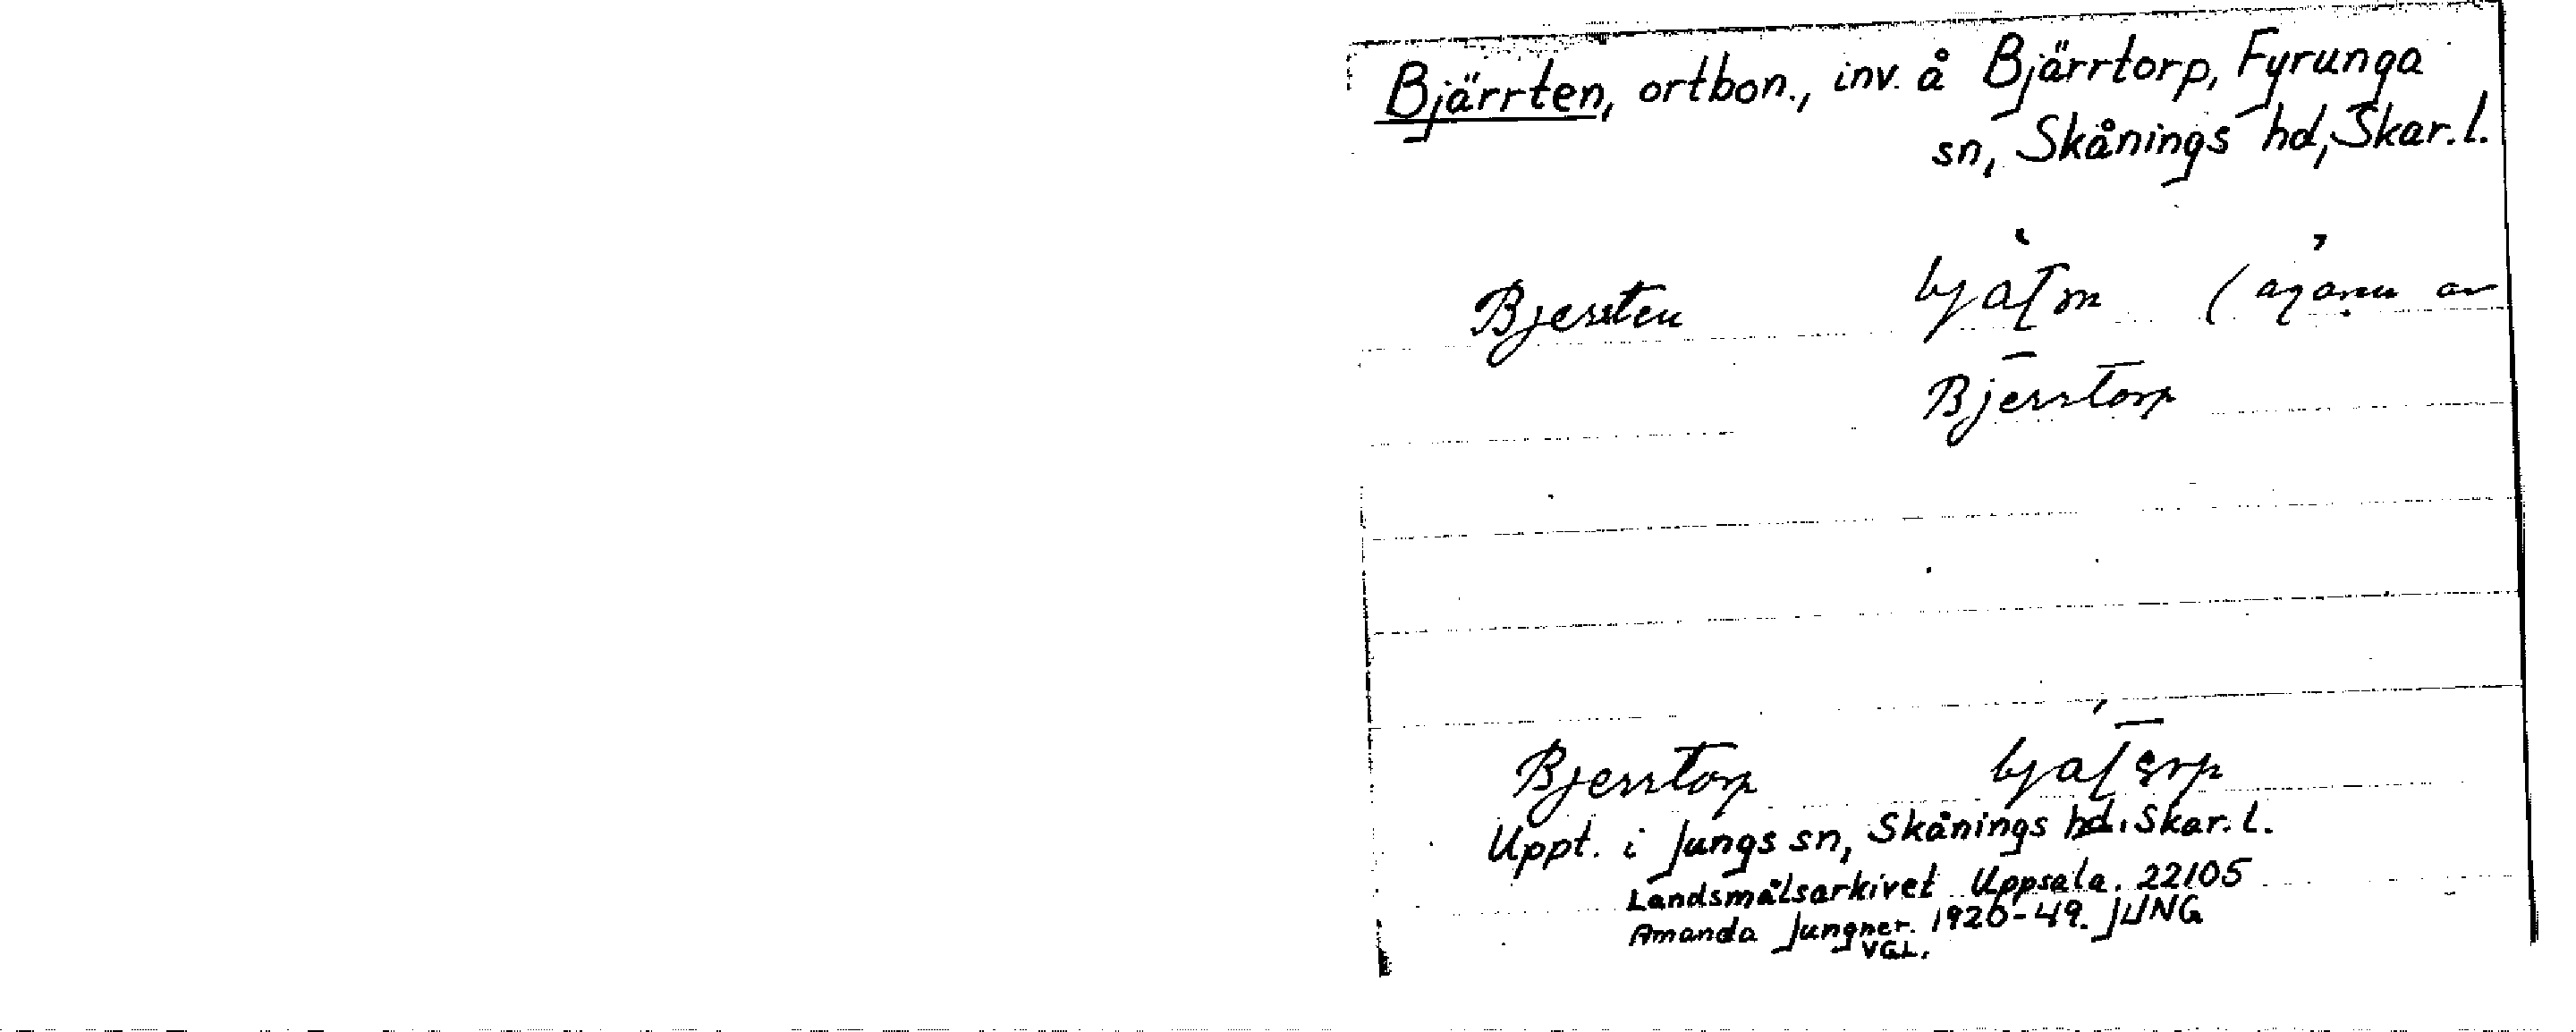 Bjärrten, ortbon., inv. å Bjärrtorp, Fyrunga
sn, Skånings hd, Skar. l.
Bjerrten (ägaren av
Bjerrtorp
Bjerrtorp
Uppt. i Jungs sn, Skånings hd. Skar. l.
Landsmålsarkivet Uppsala. 22105
Amanda Jungner. 1926-49. JUNG
VGL.